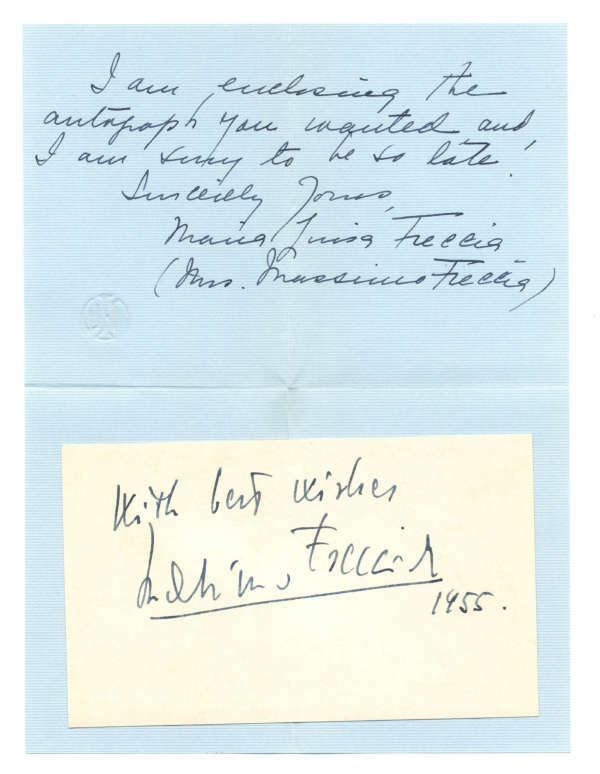 I am enclosing the
autograph you wanted and
I am sorry to be so late.
Sincerely Yours,
Maria Luisa Freccia
(Mrs. Massimo Freccia)
With best wishes
Massimo Freccia
1955.